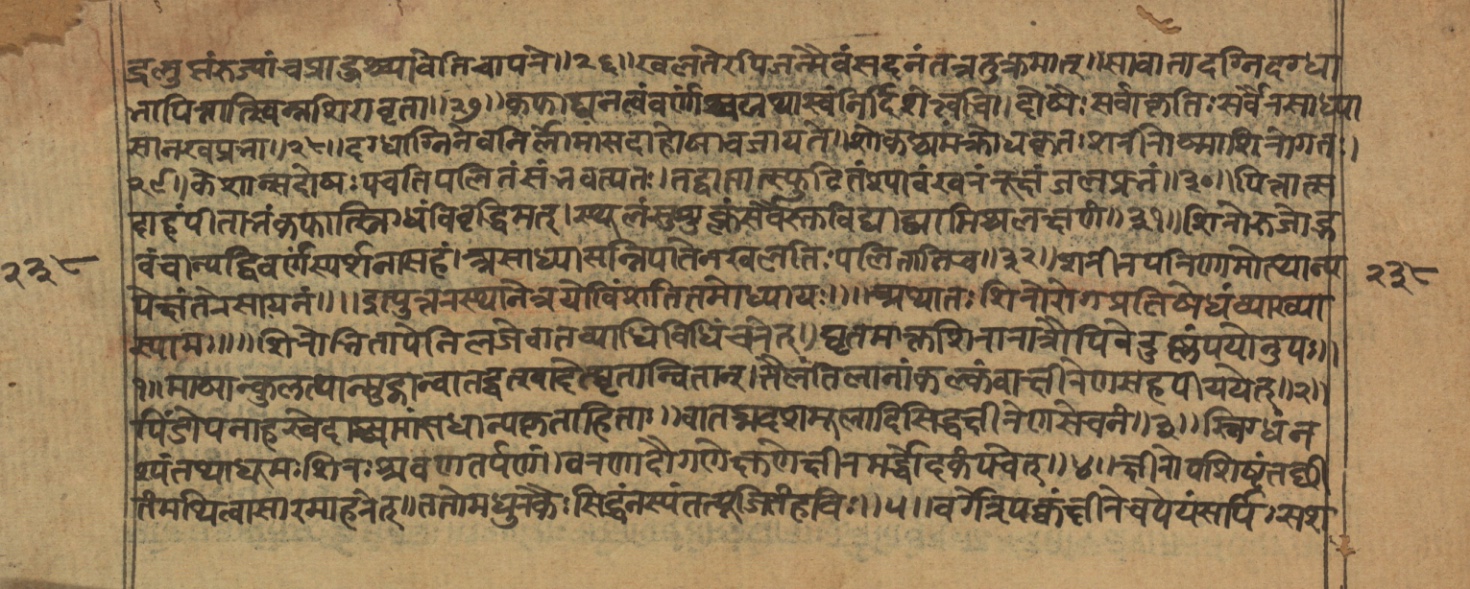 द्रलुप्तंरुज्यांचप्राहुश्चाचेतिचापरे॥२६॥खलतेरपिजन्मैवंसदनंतत्रतुक्रमात्॥सावातादग्निदग्धा
भापित्तात्स्विन्नशिरावृता॥२७॥कफाद्घनत्वंवर्णंश्चयथास्वंनिर्दिशेत्त्वचि॥दोषैःसर्वाकृतिःसर्वैरसाध्या
सानखप्रभा॥२८॥दग्धाग्निनेवनिर्लोमासदाहायाचजायते॥शोकश्रमक्रोधकृतःशरीरोष्माशिरोगतः।
२९॥केशान्सदोषःपचतिपलितंसंभवत्यतः।तद्वातात्स्फुटितंश्यावंखरंरूक्षंजलप्रभं॥३०॥पित्तात्स
दाहंपीताभंकफात्स्निग्धंविवृद्धिमत्।स्थूलंसुशुक्लंसर्वैस्तुविद्याद्व्यामिश्रलक्षणं॥३१॥शिरोरुजोद्भ
वंचान्यद्विवर्णंस्पर्शनासहं।असाध्यासन्निपातेनखलतिःपलितानिच॥३२॥शरीरपरिणामोत्थान्य
पेक्षंतेरसायनं॥॥इत्युत्तरस्थानेत्रयोविंशतितमोध्यायः॥॥अथातःशिरोरोगप्रतिषेधंव्याख्या
स्यामः॥॥शिरोभितापेनिलजेवातव्याधिविधिंचरेत्॥घृतमाक्तशिरारात्रौपिबेदुष्णंपयोनुपः॥
१॥माषान्कुलत्थान्मुद्गान्वातद्वत्खादेद्घृतान्वितान्।तैलंतिलानांकल्कंवाक्षीरेणसहपाययेत्॥२॥
पिंडोपनाहस्वेदाश्चमांसधान्यकृताहिताः॥वातघ्नदशमूलादिसिद्धक्षीरेणसेचनं॥३॥स्निग्धंन
स्यंतथाधूमःशिरःश्रवणतर्पणं।वरणादौगणेक्षुण्णेक्षीरमर्द्धोदकंपचेत्॥४॥क्षीरावशिष्टंतच्छी
तंमथित्वासारमाहरेत्॥ततोमधुरकैःसिद्धंनस्यंतत्पूजितंहविः॥५॥वर्गेत्रपक्वंक्षीरेचपेयंसर्पिःसश
२३८
२३८